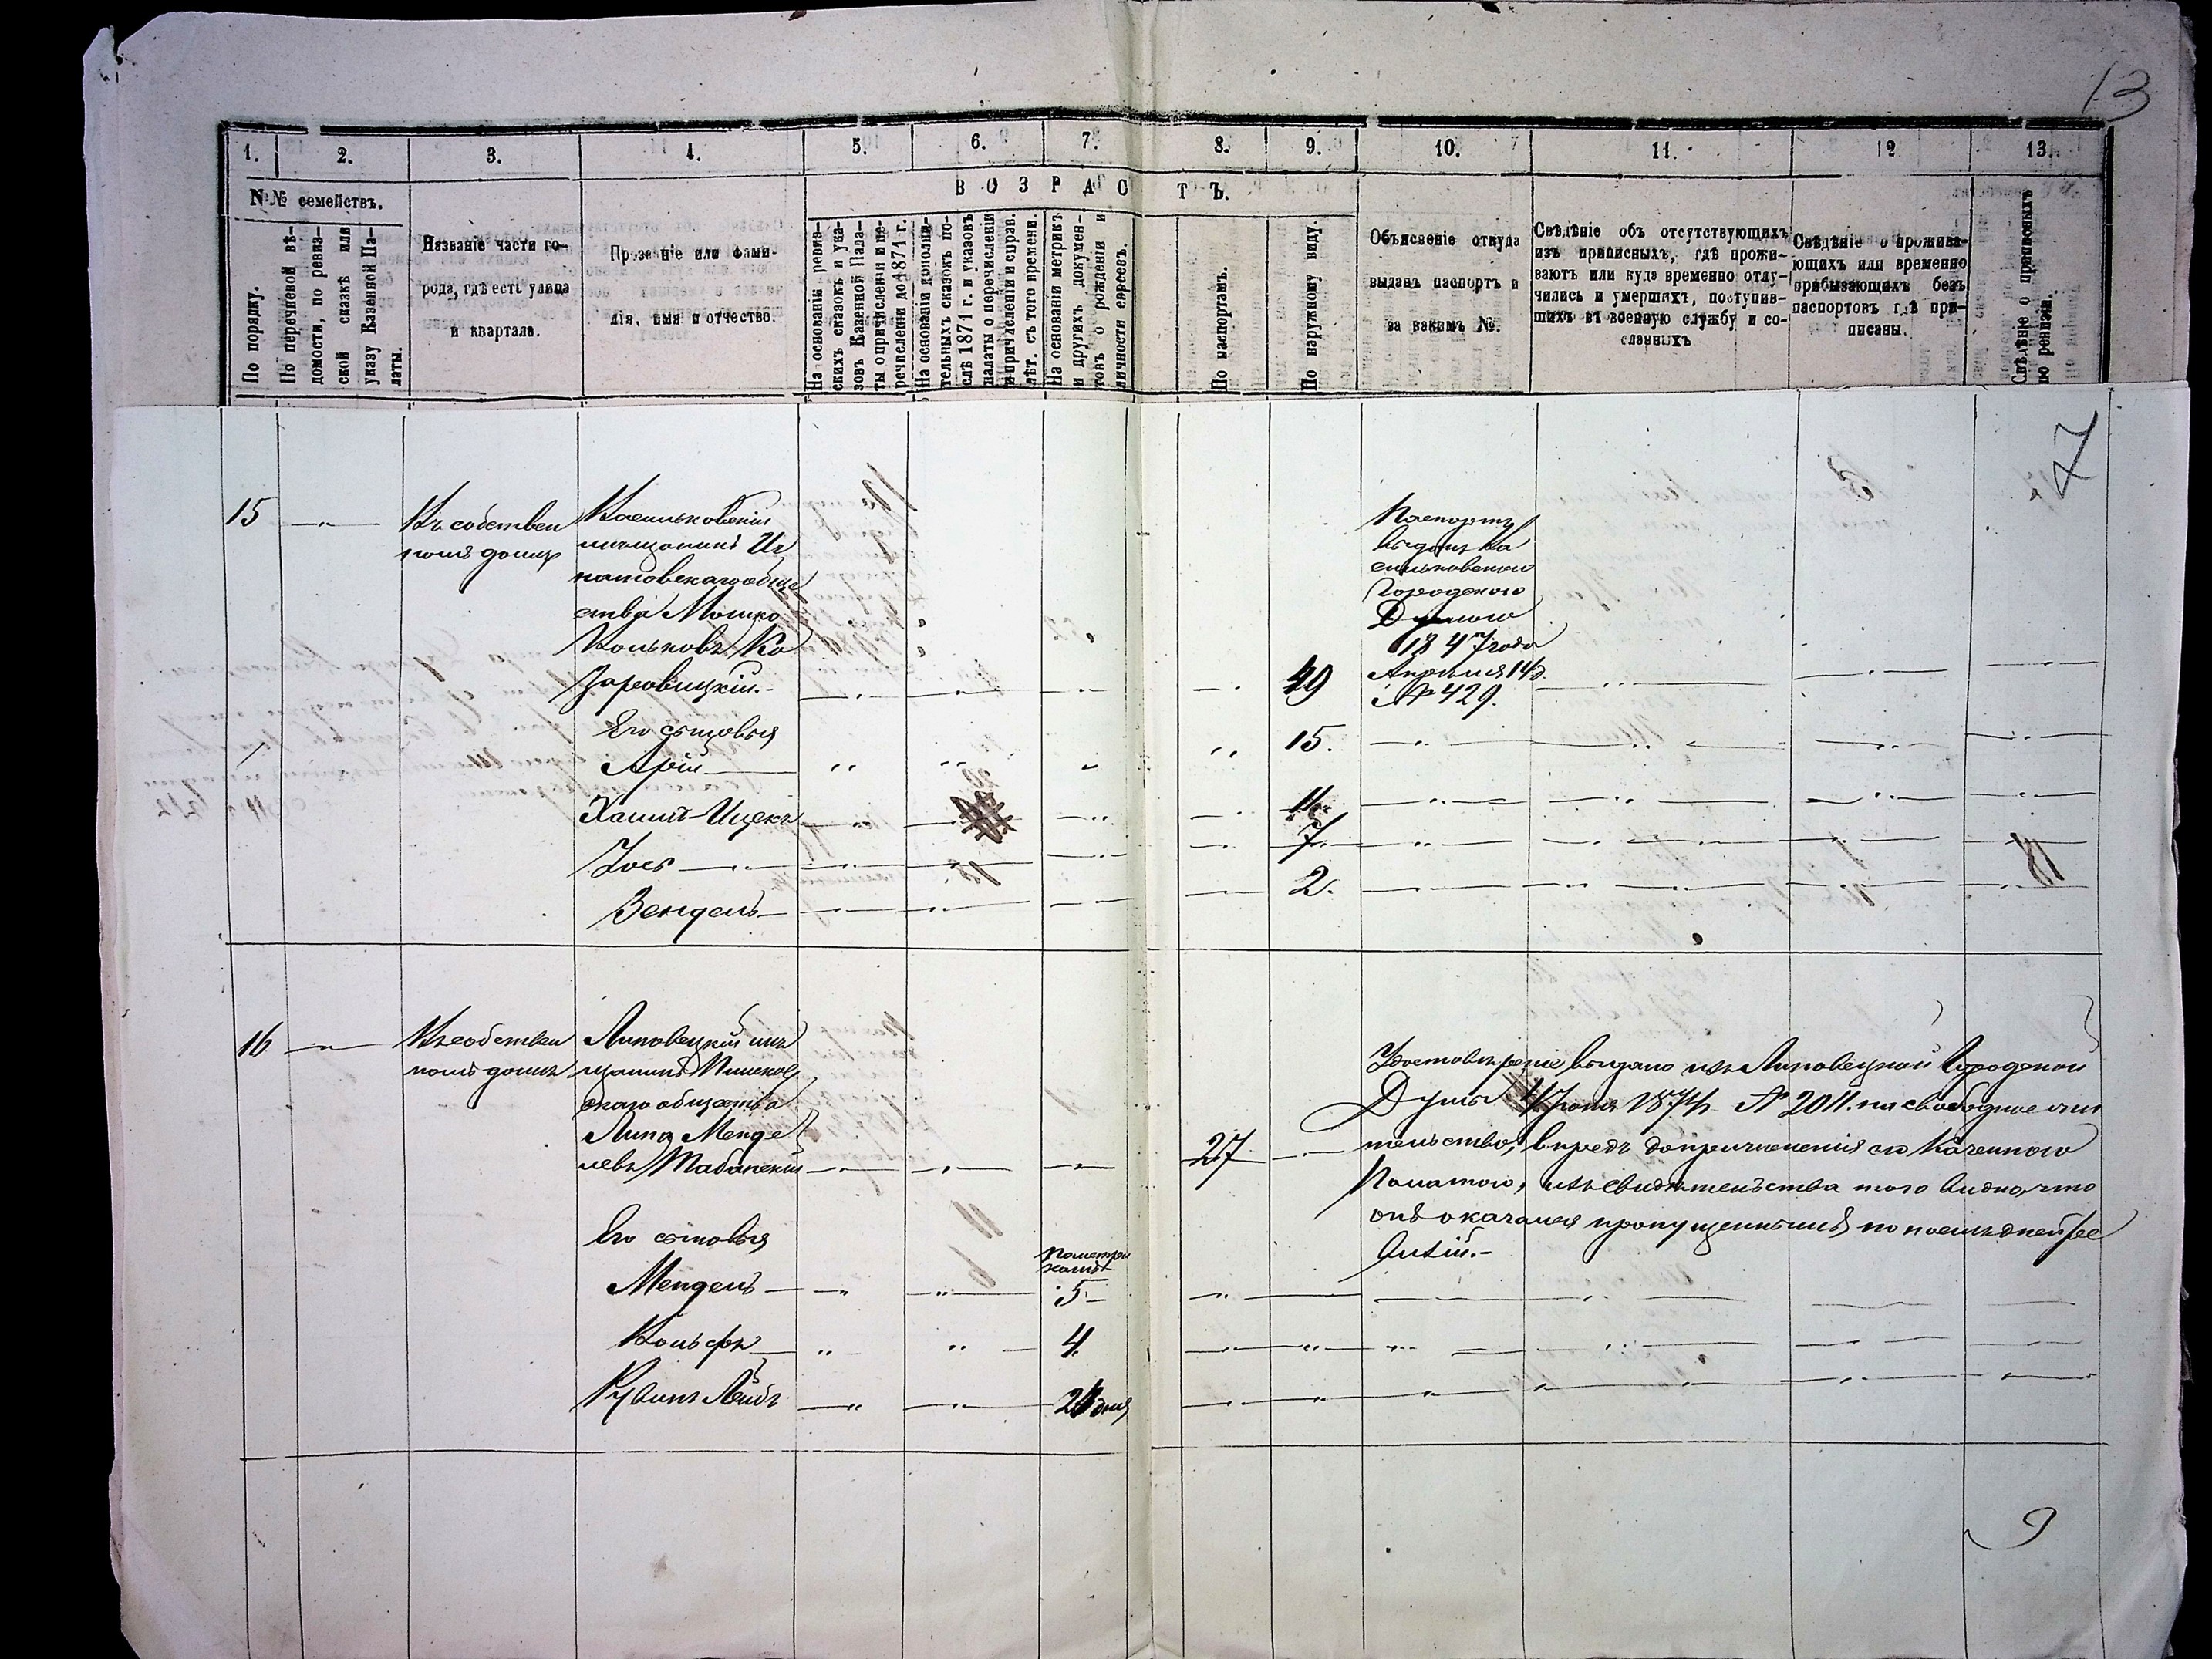 13
1. 2. 3. 4. 5. 6. 7. 8. 9. 10. 11. 12 13.
№№ семействъ.
ВОЗРАСТЪ.
По порядку.
По перечневой вѣ-
домости, по ревиз-
ской сказкѣ или
указу Казенной Па-
латы.
Названіе части го-
рода, гдѣ есть улица
и квартала.
Прозваніе или фами-
лія, имя и отчество.
На основаніи ревиз-
скихъ сказокъ и ука-
зовъ Казенной Пала-
ты о причисленіи и пе-
речисленіи до 1871 г.
На основаніи дополни-
тельныхъ сказокъ по-
слѣ 1871 г. и указовъ
палаты о перечисленіи
и причисленіи и справ.
лѣт. съ того времени.
На основаніи метрикъ
и другихъ докумен-
товъ о рожденіи и
личности евреевъ.
По паспортамъ.
По наружному виду.
Объясненіе откуда
выданъ паспортъ и
за какимъ №.
Свѣдѣніе объ отсутствующихъ
изъ приписныхъ, гдѣ прожи-
ваютъ или куда временно отлу-
чились и умершихъ, поступив-
шихъ въ военную службу и со-
сланныхъ
Свѣдѣніе о прожива-
ющихъ или временно
прибывающихъ безъ
паспортовъ гдѣ при-
писаны.
Свѣдѣніе о приписныхъ
по ревизіи.
7
15
Въ собствен
номъ домѣ
Васильковскій
мѣщанинъ Иг
натовскаго обще
ства Мошко
Вольковъ Ко
заровицкій.
49
Паспортъ
выданъ Ва
сильковскою
Городскою
Думою
1847 года
Апрѣля 14д.
№ 429.
Его сыновья
Арій 15.
Хаимъ-Ицекъ 11
Іось 7
Зендель 2.
16
Въ собствен
номъ домѣ
Липовецкій мѣ
щанинъ
скаго общества
Липа Менде
левъ Табанскій
27
Удостовѣреніе выдано изъ Липовецкой Городской
Думы 1874 № 2011. на свободное жи
тельство, впредь до причисленія его Казенною
Палатою, изъ свидѣтельства того видно, что
онъ оказался пропущеннымъ по послѣдней ре
визіи.-
Его сыновья
По метри
камъ
Мендель 5
Вольфъ 4
Рувинъ Лейбъ дня